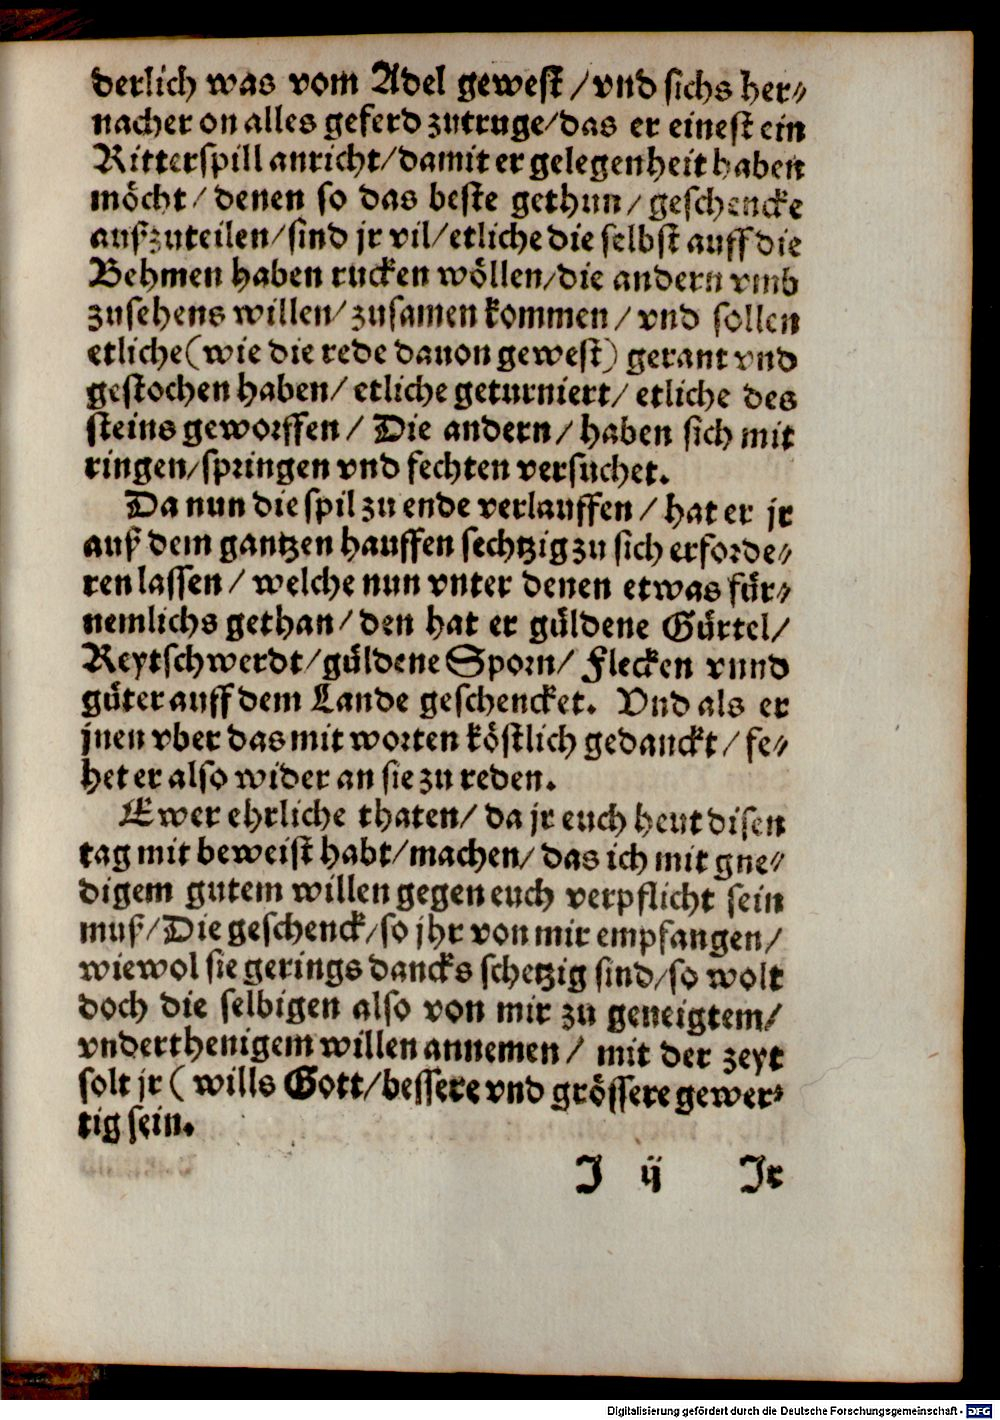 derlich was vom Adel gewest / vnd sichs her⸗
nacher on alles geferd zutruge/das er einest ein
Ritterspill anricht/damit er gelegenheit haben
möcht / denen so das beste gethun / geschencke
außzuteilen/sind jr vil/etliche die selbst auff die
Behmen haben rucken wöllen/die andern vmb
zusehens willen/ zusamen kommen / vnd sollen
etliche (wie die rede dauon gewest) gerant vnd
gestochen haben/ etliche geturniert/ etliche des
steins geworffen/ Die andern/ haben sich mit
ringen/springen vnd fechten versuchet.
Da nun die spil zu ende verlauffen / hat er jr
auß dem gantzen hauffen sechtzig zu sich erforde⸗
ren lassen / welche nun vnter denen etwas für⸗
nemlichs gethan/ den hat er güldene Gürtel/
Reytschwerdt/güldene Sporn/ Flecken vnnd
güter auff dem Lande geschencket. Vnd als er
jnen vber das mit worten köstlich gedanckt/ fe⸗
het er also wider an sie zu reden.
Ewer ehrliche thaten/ da jr euch heut disen
tag mit beweist habt/machen/ das ich mit gne⸗
digem gutem willen gegen euch verpflicht sein
muß/Die geschenck/so jhr von mir empfangen/
wiewol sie gerings dancks schetzig sind/so wolt
doch die selbigen also von mir zu geneigtem/
vnderthenigem willen annemen / mit der zeyt
solt jr ( wills Gott/bessere vnd grössere gewer⸗
tig sein.
J ij Jr
Digitalisierung gefördert durch die Deutsche Forschungsgemeinschaft - DFG